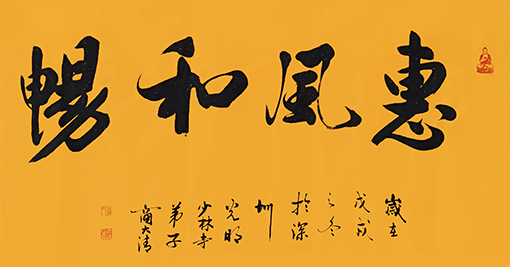 惠風和暢
歲在
戊戌
之冬
於深
圳
光明
少林寺
弟子
大清